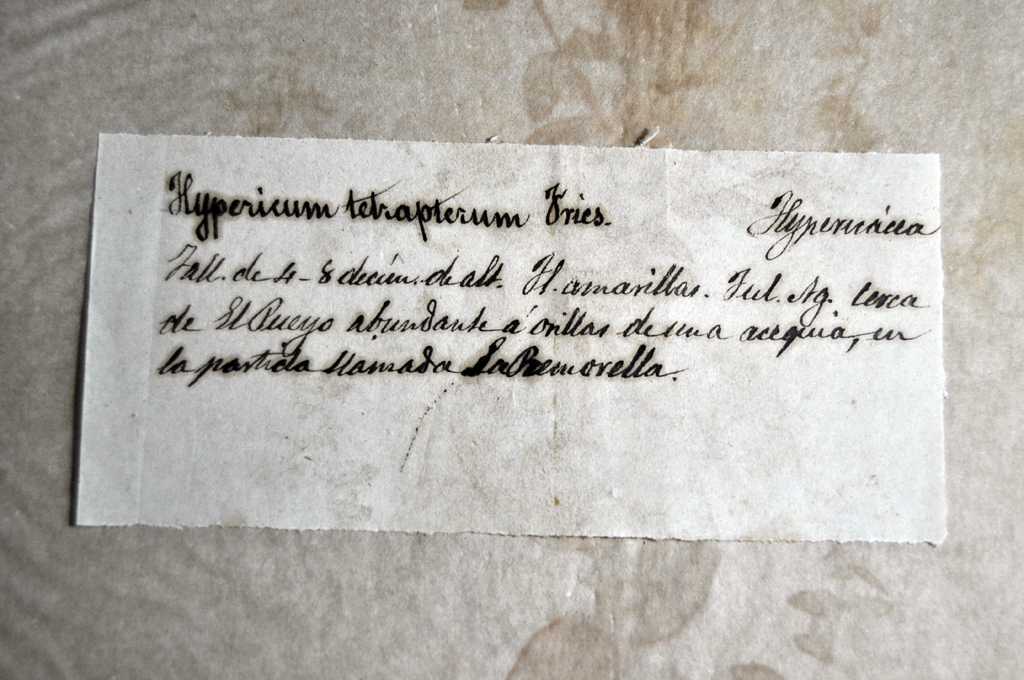 Hypericum tetrapterum Fries. Hypericácea
Tall. de 4-8 decím. de alt. Fl. amarillas. Jul. Ag. Cerca
de El Pueyo abundante á orillas de una acequia, en
la partida llamada La Remorella.